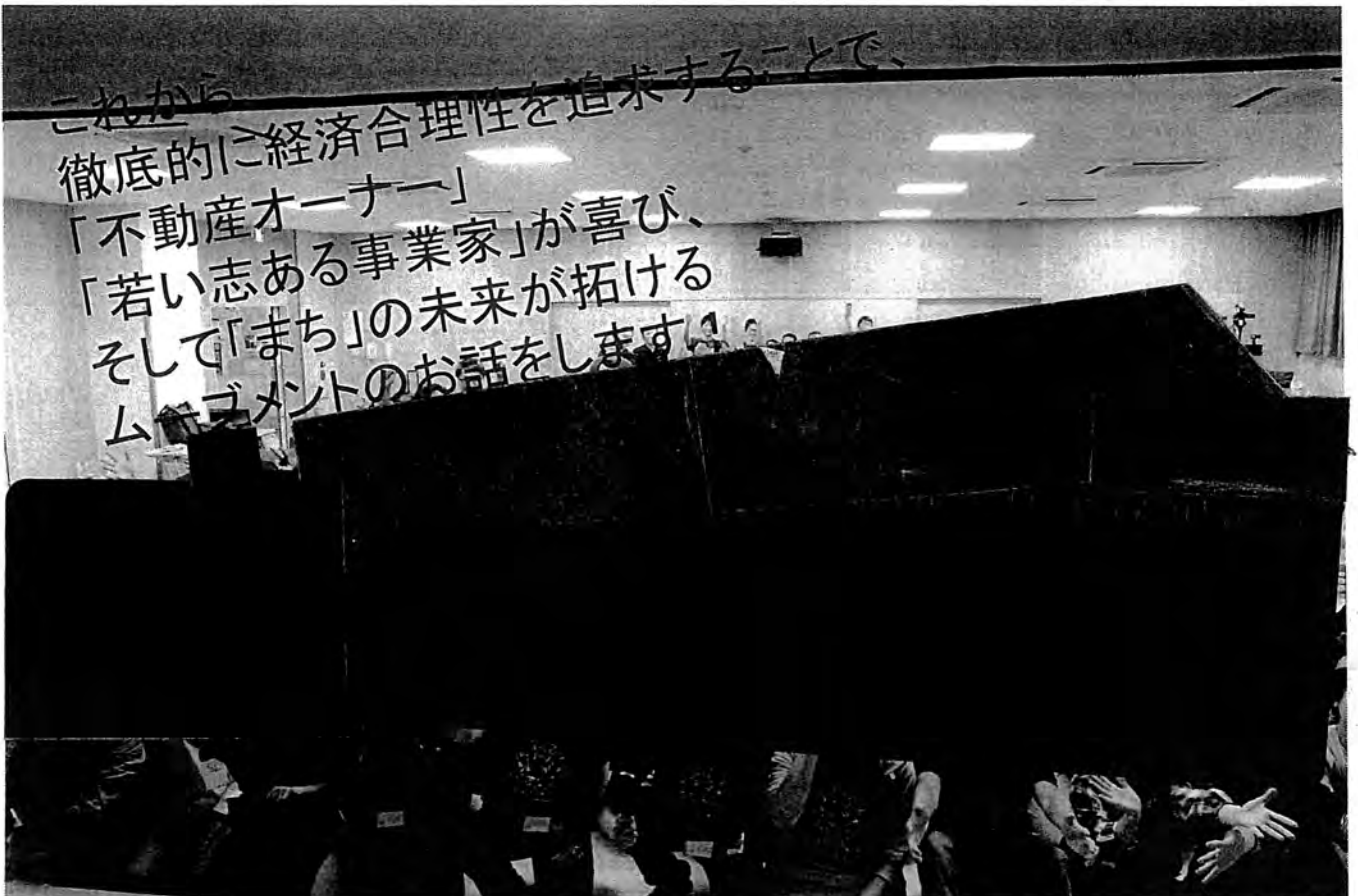 これから、
徹底的に経済合理性を追求することで、
「不動産オーナー」
「若い志ある事業家」が喜び、
そして「まち」の未来が拓ける
ムーブメントのお話をします！